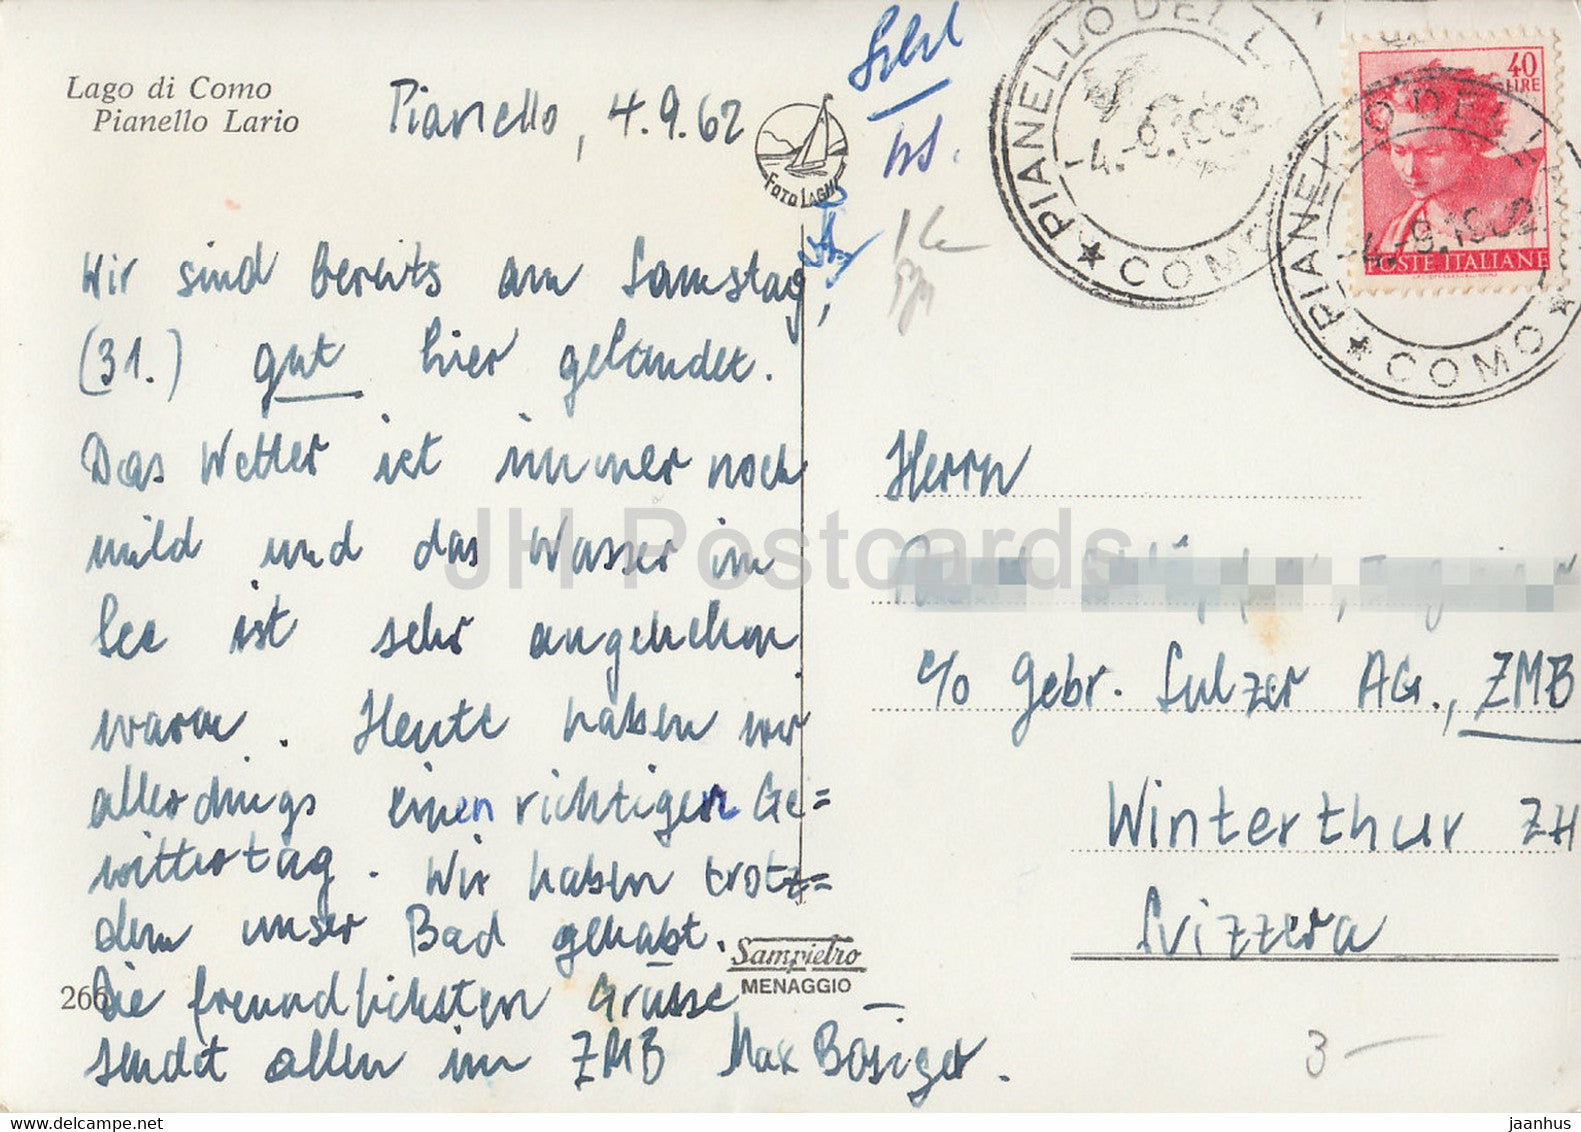 Lago di Como
Pianello Lario
Pianello, 4.9.62
FOTO LAGHI
Wir sind bereits am Samstag,
(31.) gut hier gelandet.
Das Wetter ist immer noch
mild und das Wasser im
See ist sehr angenehm
warm. Heute haben wir
allerdings einen richtigen Ge=
wittertag. Wir haben trotz=
dem unser Bad gehabt.
Die freundlichsten Grüsse
sendet allen im ZMB Max Bösiger.
266
Sampietro
MENAGGIO
PIANELLO DEL L
-4.-9.1962
COMO
40
LIRE
POSTE ITALIANE
PIANELLO DEL LA
-4.-9.1962
COMO
Herrn
c/o Gebr. Sulzer AG., ZMB
Winterthur ZH
Svizzera
3 –
JH Postcards
www.jaanhus.com